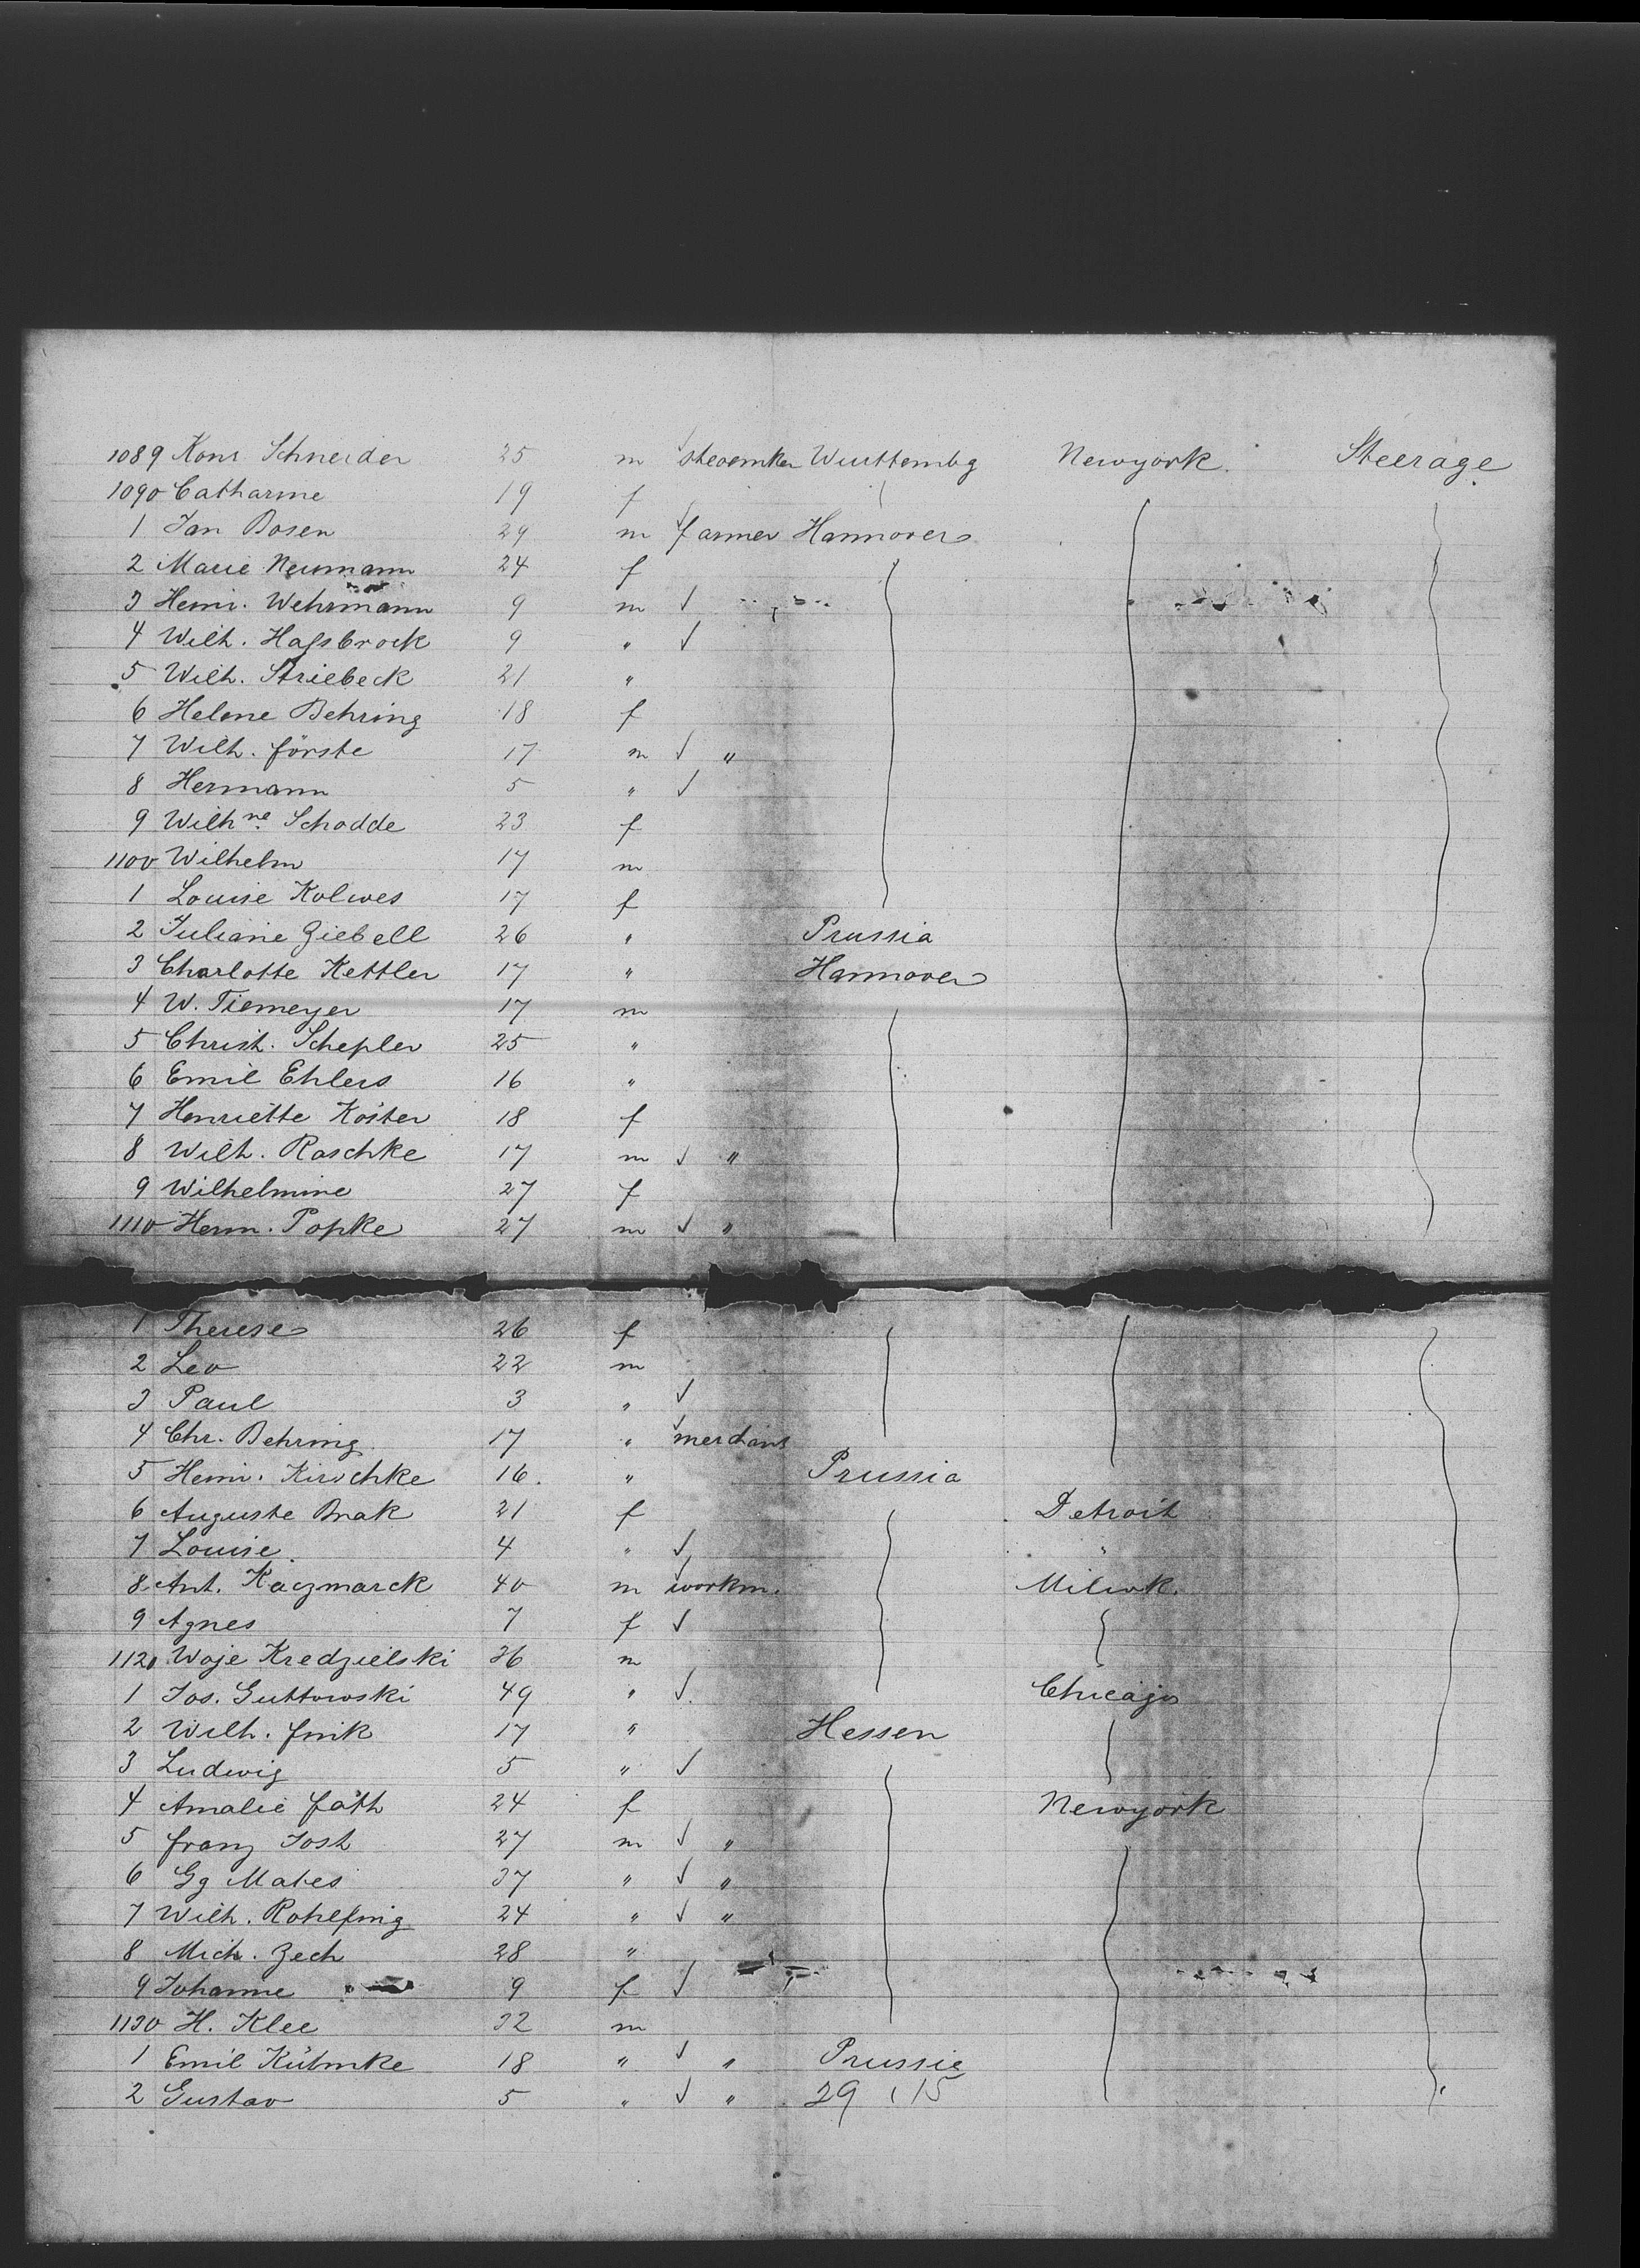 1089 Konr Schneider 25 m ✓ Wurttembg Newyork. Steerage
1090 Catharine 19 f
1 Jan Bosen 29 m ✓ farmer Hannover
2 Marie Neumann 24 f
3 Heinr. Wehrmann 9 m ✓
4 Wilh. Hassbrock 9 " ✓
5 Wilh. Striebeck 21 "
6 Helene Behring 18 f
7 Wilh. förste 17 m ✓ "
8 Hermann 5 " ✓
9 Wilhne. Schodde 23 f
1100 Wilhelm 17 m
1 Louise Kolwes 17 f
2 Juliane Ziebell 26 " Prussia
3 Charlotte Kettler 17 " Hannover
4 W. Tiemeyer 17 m
5 Christ. Schepler 25 "
6 Emil Ehlers 16 "
7 Henriette Köster 18 f
8 Wilh. Raschke 17 m ✓ "
9 Wilhelmine 27 f
1110 Herm. Popke 27 m ✓ "
1 Therese 26 f
2 Leo 22 m
3 Paul 3 " ✓
4 Chr. Behring 17 " ✓ merchant
5 Heinr. Kirschke 16. " Prussia
6 Auguste Brak 21 f Detroit
7 Louise 4 " ✓ "
8 Ant. Kaczmarck 40 m ✓ workm. Milwk.
9 Agnes 7 f ✓
1120 Woje Kredzielski 36 m
1 Jos. Guttowski 49 " ✓ Chicago
2 Wilh. fink 17 " Hessen
3 Ludwig 5 " ✓
4 Amalie fäth 24 f Newyork
5 franz Jost 27 m ✓ "
6 Gg Mates 37 " ✓ "
7 Wilh. Rohlfing 24 " ✓ "
8 Mich. Zech 28 "
9 Johanne 9 f ✓
1130 H. Klee 32 m
1 Emil 18 " ✓ " Prussia
2 Gustav 5 " ✓ " 29 15